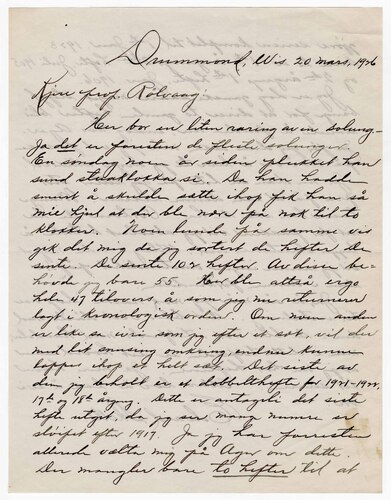 Drummond, Wis. 20 mars, 1926
Kjære prof. Rölvaag:
Her bor en liten raring av en solung.
Ja det er foresten de fleste solunger.
En søndag noen år siden plukket han
sund steaklokka si. Da han hadde
smurt å skulde sätte ihop fik han så
mie hjul at der ble nære på nok til to
klokker. Noenlunde på samme vis
gik det mig da jeg sortert de hefter De
sente. De sente 102 hefter. Av disse be-
høvde jeg bare 55. Her ble altså ergo
hele 47 tilovers, å som jeg nu returnerer
lagt i kronologisk orden. Om noen anden
er like så ivri som jeg efter et sæt, vil der
med lit snusing omkring endnu kunne
loppes ihop et helt sæt. Det siste av
dem jeg beholdt er et dobbelthefte for 1921-1922,
17th og 18th årgang. Dette er antageli det siste
hefte utgit, da jeg ser mange numre er
sløifet efter 1917. Ja jeg har foresten
allerede vælta mig på Ager om dette.
Der mangler bare to hefter til at